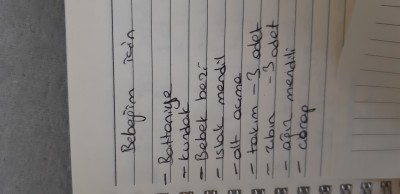 Bebeğim için
- Battaniye
- Kundak
- Bebek bezi
- ıslak mendil
- alt açma
- takım - 3 adet
- zıbın - 3 adet
- ağız mendili
- çorap